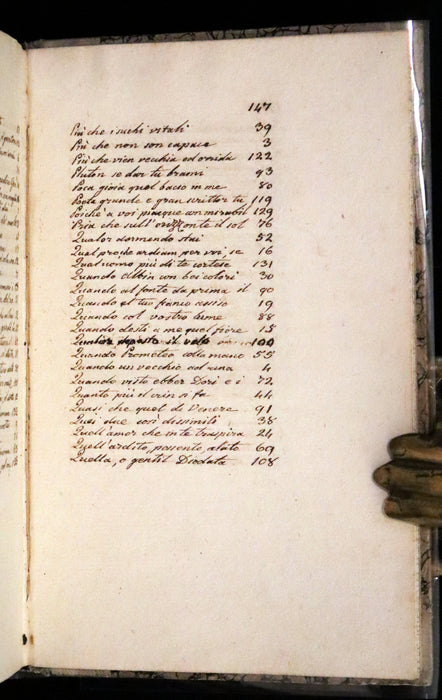 147
Più che i suchi vitali 39
Più che non son capace 3
Più che vien vecchia ed orrida 122
Pluton se dar tu brami 93
Poca gioia quel bacio in me 80
Poeta grande e gran scrittor tu 119
Poichè a voi piacque con mirabil 129
Pria che sull'orizzonte il sol 76
Qualor dormendo stai 52
Qual pro che ardiam per voi, se 16
Qual uomo più di te cortese 131
Quando Albin con bei colori 30
Quando al fonte da prima il 90
Quando al tuo franco assiso 19
Quando col vostro lume 88
Quando desti a me quel fiore 15
deposto il velo 100
Quando Prometeo colla mano 55
Quando un vecchio ad una 4
Quando visto ebber Dori e i 72
Quanto più il crin si fa 44
Quasi che quel di Venere 91
Quei due così dissimili 38
Quell'amor che in te traspira 24
Quell'ardito, possente, alato 69
Quella, o gentil Diodata 108